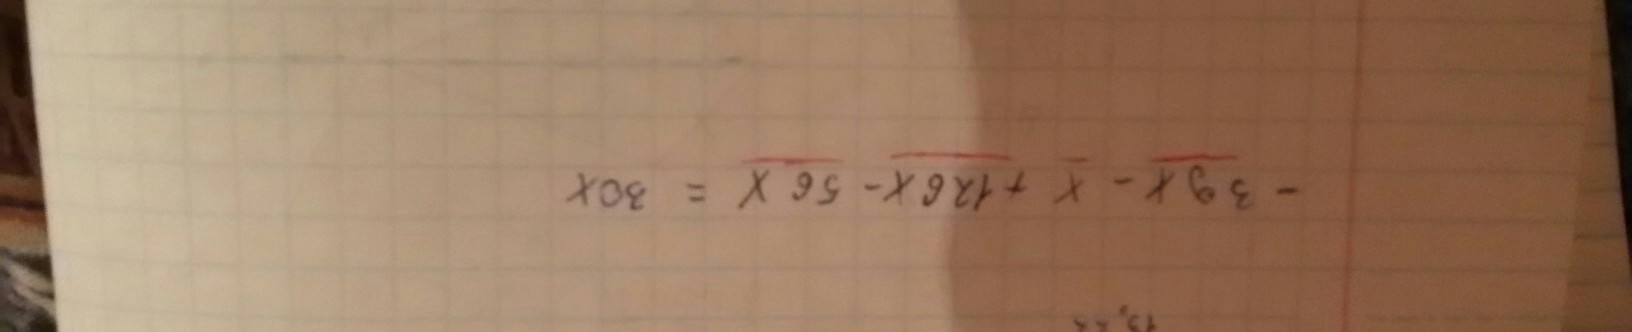 - 39x - x + 126x - 56x = 30x